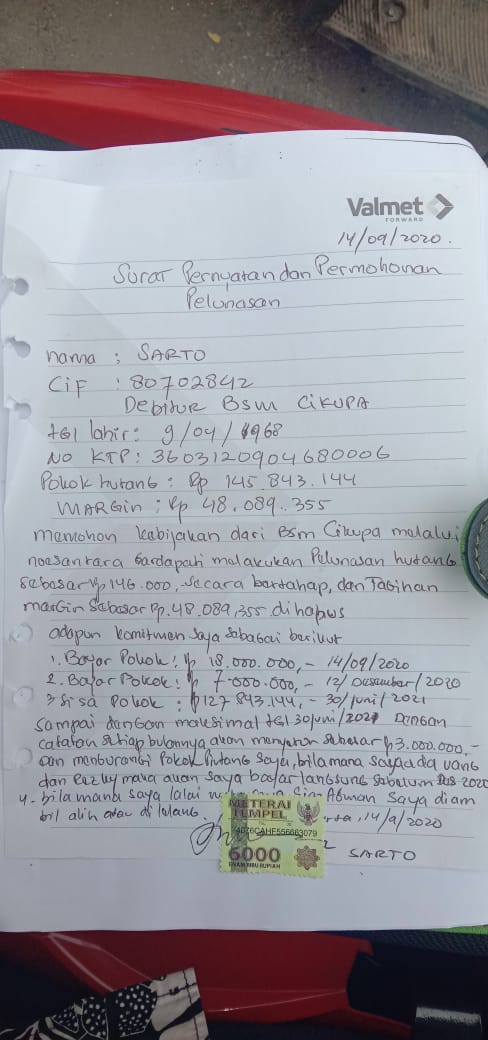 Valmet
FORWARD
14/09/2020.
Surat Pernyataan dan Permohonan
Pelunasan
nama : SARTO
CIF : 80702842
Debitur BSM CIKUPA
tgl lahir : 9/04/1968
NO KTP : 3603120904680006
Pokok hutang : Rp 145.843.144
MARGin : Rp 48.089.355
memohon kebijakan dari BSM Cikupa melalui
noesantara melakukan Pelunasan hutang
sebesar Rp 146.000, secara bertahap, dan Tagihan
margin sebesar Rp. 48.089,355 dihapus
adapun komitmen saya sebagai berikut
1. Bayar Pokok : Rp 18.000.000,- 14/09/2020
2. Bayar Pokok : Rp 7.000.000,- 12/Desember/2020
3 Sisa Pokok : Rp 127.843.144,- 30/juni/2021
sampai dengan maksimal tgl 30 juni/2021 Dengan
catatan setiap bulannya akan menyetor sebesar Rp 3.000.000,-
dan mengurangi Pokok hutang saya, bilamana saya ada uang
dan rezky maka akan saya bayar langsung sebelum 2020
4. bila mana saya lalai saya diam
bil alih atau di lelang.
14/9/2020
METERAI
TEMPEL
6000
ENAM RIBU RUPIAH
SARTO